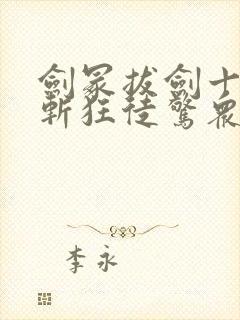 劍冢拔劍十
斬狂徒驚眾
李永